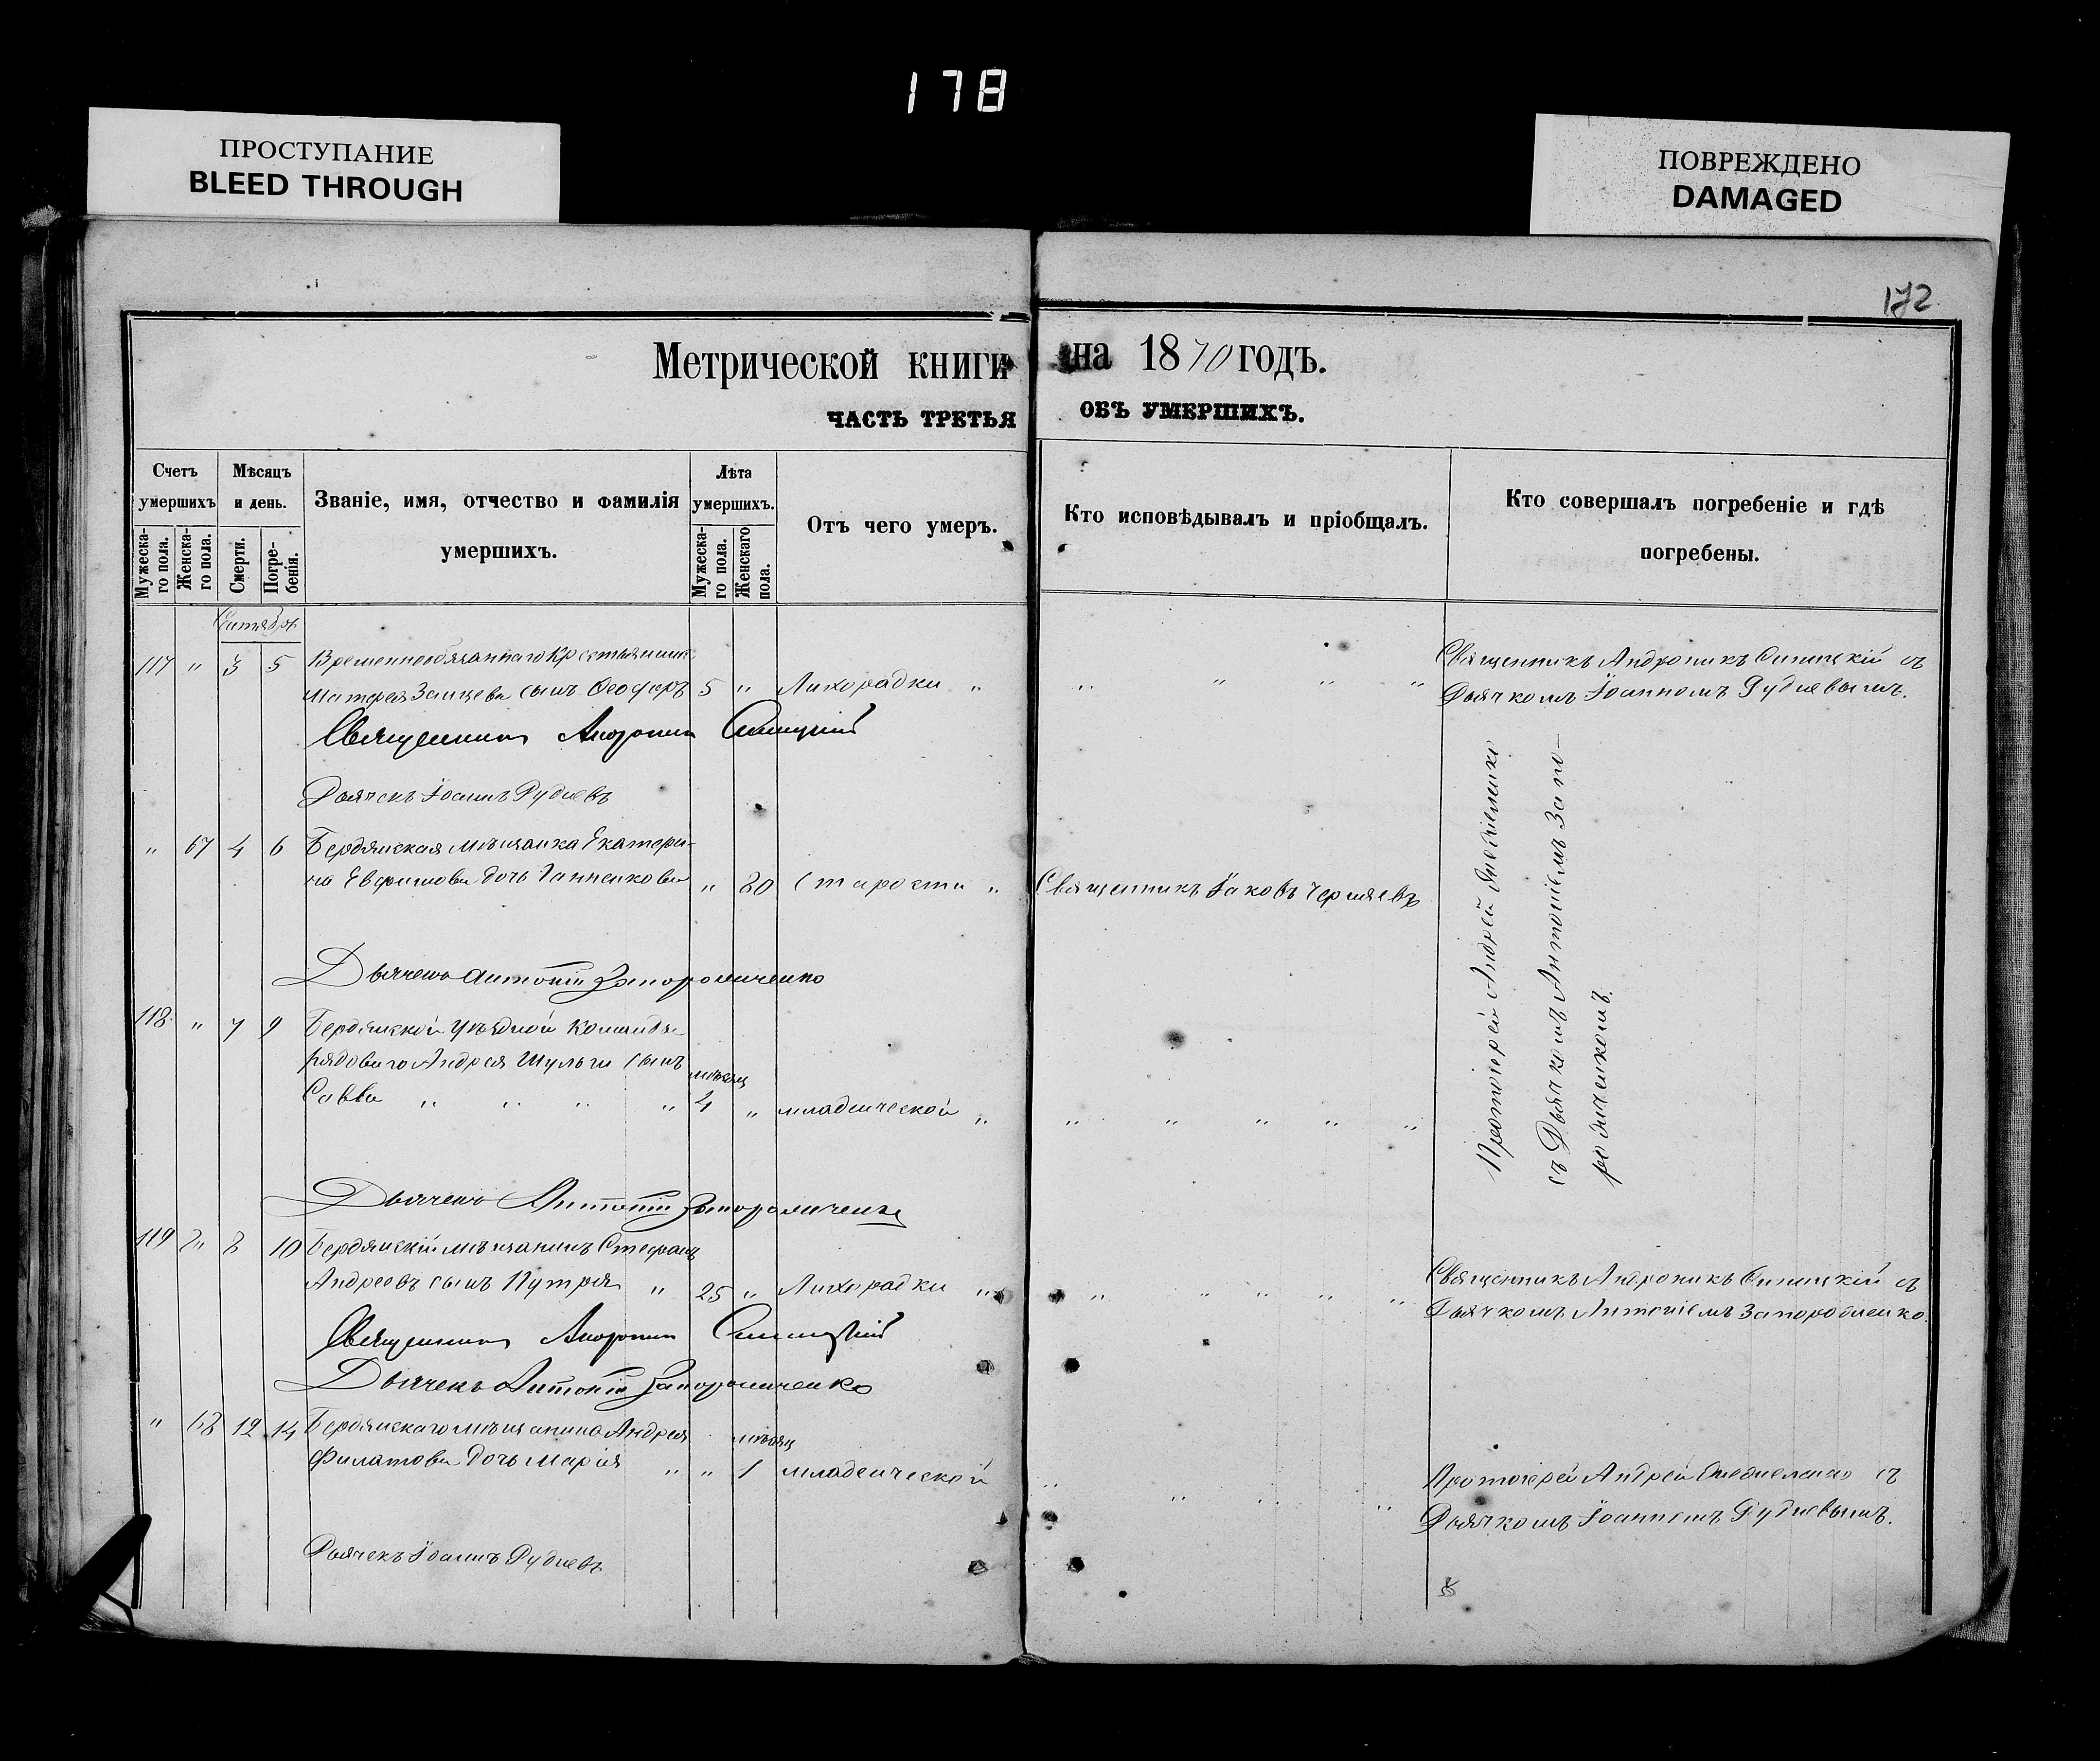 178
ПРОСТУПАНИЕ
BLEED THROUGH
ПОВРЕЖДЕНО
DAMAGED
172
Метрической книги на 1870 годъ.
ЧАСТЬ ТРЕТЬЯ ОБЪ УМЕРШИХЪ.
Счетъ умершихъ
Мужеска-го пола.
Женска-го пола.
Мѣсяцъ и день.
Смерти.
Погре-бенія.
Званіе, имя, отчество и фамилія
умершихъ.
Лѣта умершихъ.
Мужеска-го пола.
Женскаго пола.
Отъ чего умеръ.
Кто исповѣдывалъ и пріобщалъ.
Кто совершалъ погребеніе и гдѣ
погребены.
Сентябрь
117 " 3 5 Временнообязаннаго Крестьянина
Матфея Заицева сынъ Феодоръ 5 " Лихорадки " " " " "
Священникъ Андроникъ Синицкій съ
Дьячкомъ Іоанномъ Рудневымъ.
Священникъ Андроникъ Синицкій
Дьячекъ Іоаннъ Рудневъ
" 67 4 6 Бердянская мѣщанка Екатери-
на Евфимова дочь Ганненкова " 80 Старости " Священникъ Іаковъ Черняевъ
Протоіерей Андрей
съ Дьячкомъ Антоніемъ Запо-
рожченкомъ.
Дьячекъ Антоній Запорожченко
118 " 7 9 Бердянской Уѣздной Команды
рядоваго Андрея Шульги сынъ мѣсяц
Савва " " " " 4 " младенческой " " " " " "
Дьячекъ Антоній Запорожченко
119 " 8 10 Бердянскій мѣщанинъ Стефанъ
Андреевъ сынъ Путря " 25 " Лихорадки " " " " " "
Священникъ Андроникъ Синицкій съ
Дьячкомъ Антоніемъ Запорожченко.
Священникъ Андроникъ Синицкій
Дьячекъ Антоній Запорожченко
" 68 12 14 Бердянскаго мѣщанина Андрея мѣсяц
Филатова дочь Марія " " 1 младенческой " " " "
Протоіерей Андрей съ
Дьячкомъ Іоанномъ Рудневымъ.
Дьячекъ Іоаннъ Рудневъ